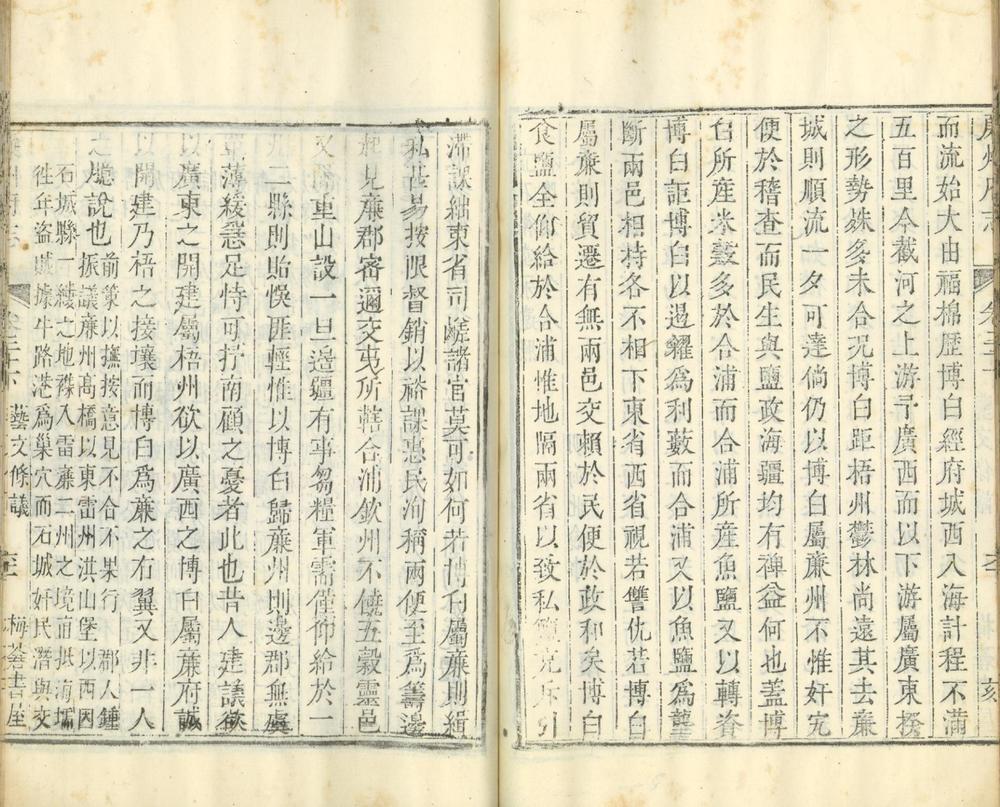 廉州府志 卷二十
而流始大由福棉歷博白經府城西入海計程不滿
五百里今截河之上游予廣西而以下游屬廣東揆
之形勢姝多未合況博白距梧州鬱林尚遠其去廉
城則順流一夕可達倘仍以博白屬廉州不惟奸宄
便於稽查而民生與鹽政海疆均有裨益何也蓋博
白所産米穀多於合浦而合浦所産魚鹽又以轉資
博白詎博白以遏糴為利藪而合浦又以魚鹽為壟
斷兩邑相持各不相下東省西省視若讐仇若博白
屬廉則貿遷有無兩邑交賴於民便於政和矣博白
食鹽全仰給於合浦惟地隔兩省以致私鹽充斥引
滯課絀東省司鹺諸官莫可如何若博白屬廉則緝
私甚易按限督銷以裕課惠民洵稱兩便至為籌邊
起見廉郡密邇交夷所轄合浦欽州不饒五穀靈邑
又隔重山設一旦邊疆有事芻糧軍需僅仰給於一
州二縣則貽悞匪輕惟以博白歸廉州則邊郡無虞
單薄緩急足恃可抒南顧之憂者此也昔人建議欲
以廣東之開建屬梧州欲以廣西之博白屬廉府誠
以開建乃梧之接壤而博白為廉之右翼又非一人
之臆說也前策以撫按意見不合不果行郡人鍾
振議廉州高橋以東雷州洪山堡以西因
石城縣一綫之地襟入雷廉二州之境南抵海壖
徃年盜賊據牛路港為巢穴而石城奸民潛與交
廉州府志 卷二十 藝文條議 梅菴書屋